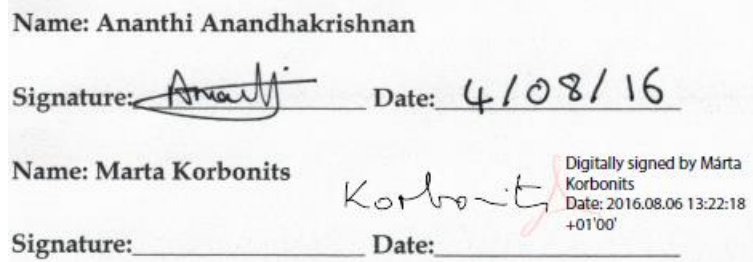 Name: Ananthi Anandhakrishnan
Signature: Ananthi Date: 4/08/16
Name: Marta Korbonits
Korbonits
Digitally signed by Márta
Korbonits
Date: 2016.08.06 13:22:18
+01'00'
Signature: Date: